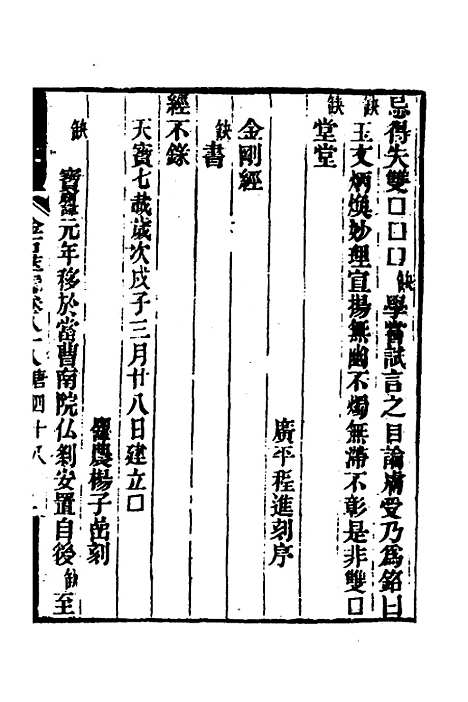 忌得失雙囗囗囗缺學嘗試言之目論膚受乃爲銘曰
缺玉文炳煥妙理宣揚無幽不燭無滯不彰是非雙囗
缺堂堂
廣平程進刻序
金剛經
缺書
經不錄
天寶七載歲次戊子三月廿八日建立囗
農楊子岳刻
缺寶曆元年移於當曹南院仏刹安置自後缺至
金石萃編卷八十八唐四十八